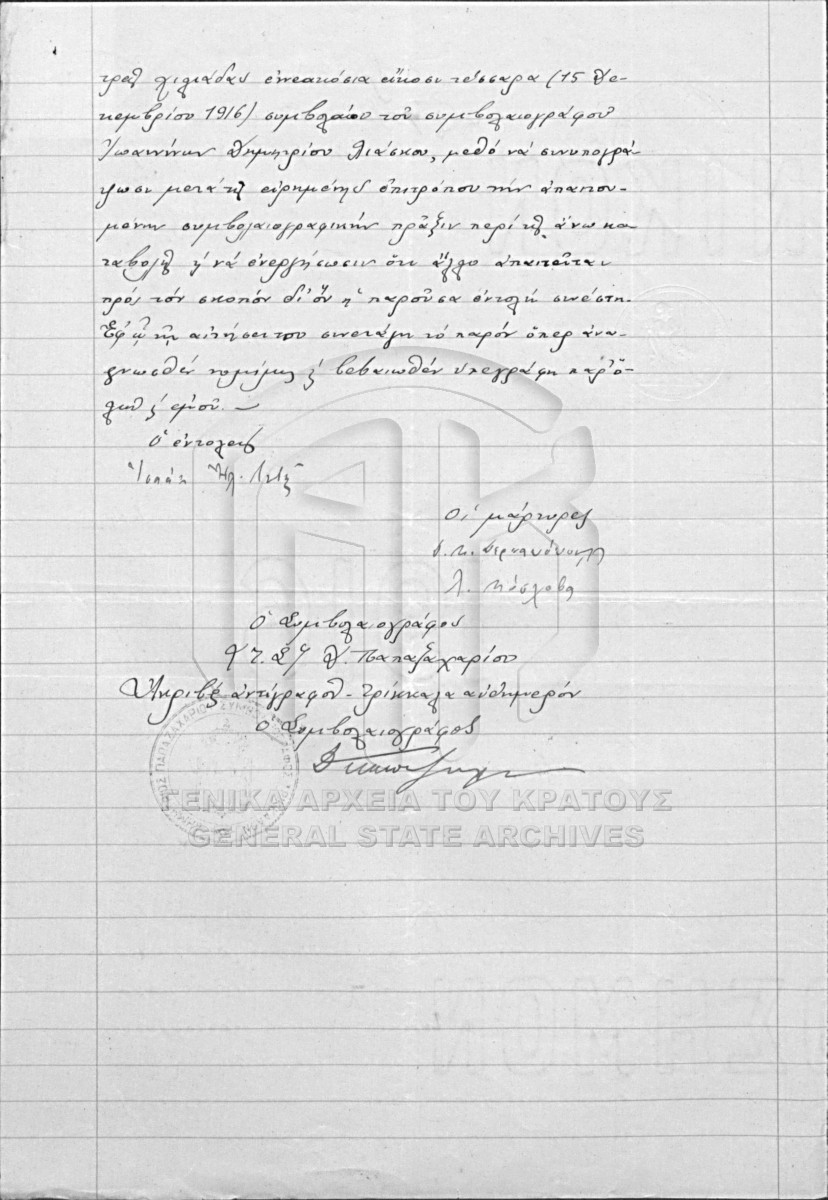 τρεῖς χιλιάδας ἐννεακόσια εἴκοσι τέσσαρα (15 Δε-
κεμβρίου 1916) συμβολαίου τοῦ συμβολαιογράφου
Ἰωαννίνων Δημητρίου Λιάσκου, μεθ' ὃ νὰ συνυπογρά-
ψωσι μετὰ τῆς εἰρημένης ἐπιτρόπου τὴν ἀπαιτου-
μένην συμβολαιογραφικὴν πρᾶξιν περὶ τῆς ἄνω κα-
ταβολῆς ἢ νὰ ἐνεργήσωσιν ὅτι ἄλλο ἀπαιτεῖται
πρὸς τὸν σκοπὸν δι' ὃν ἡ παροῦσα ἐντολὴ συνέστη.
Ἐφ' ᾧ τῇ αἰτήσει του συνετάγη τὸ παρὸν ὅπερ ἀνα-
γνωσθὲν νομίμως & βεβαιωθὲν ὑπεγράφη παρ' ὅ-
λων & ἐμοῦ. —
Ὁ ἐντολεὺς
Ἰσαὰκ Ἠλ. Λεβῆς
Οἱ μάρτυρες
Ὁ Συμβολαιογράφος
Δ. Παπαζαχαρίου
Ἀκριβὲς ἀντίγραφον - Τρίκκαλα αὐθημερόν
Ὁ Συμβολαιογράφος
ΓΕΝΙΚΑ ΑΡΧΕΙΑ ΤΟΥ ΚΡΑΤΟΥΣ
GENERAL STATE ARCHIVES